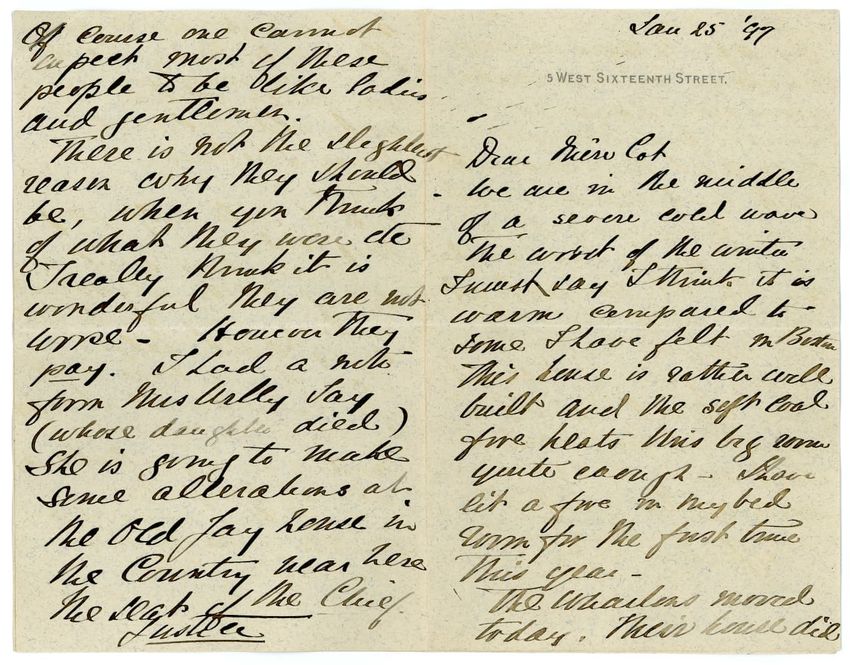 Jan 25 '97
5 West Sixteenth Street.
Dear Miss Cot
We are in the middle
of a severe cold wave
The worst of the winter
I must say I think it is
warm compared to
some I have felt in Boston
This house is rather well
built and the soft coal
fire heats this big room
quite enough - I have
lit a fire in my bed
room for the first time
This year -
The Whartons moved
today. Their house did
Of course one cannot
expect most of these
people to be like ladies
and gentlemen.
There is not the slightest
reason why they should
be, when you think
of what they were etc
I really think it is
wonderful they are not
worse - However they
pay. I had a note
from Mrs Jay
(whose daughter died)
She is going to make
some alterations at
the Old Jay house in
the Country near here
the seat of the Chief
Justice